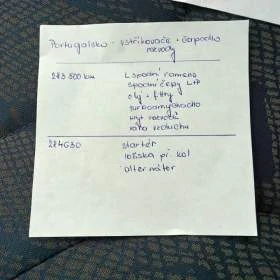 Portugalsko - vstřikovače + čerpadlo
rozvody
273 500 km L spodní rameno
spodní čepy L+P
olej + filtry
turbodmychadlo
výf
vzduchu
274630 startér
ložiska př. kol
alternátor